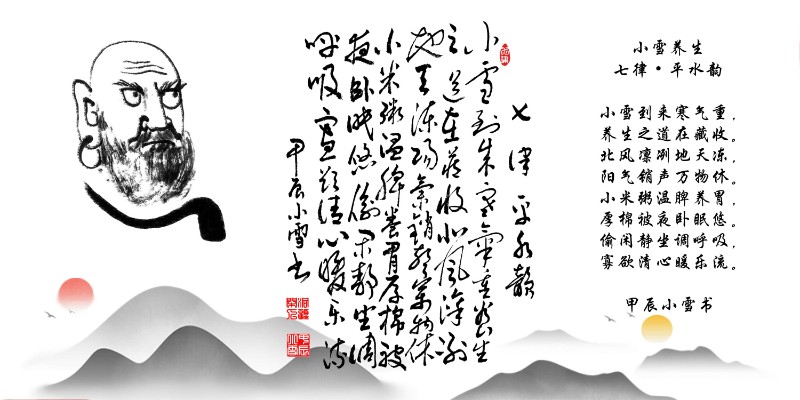 小雪养生
七律·平水韵
小雪到来寒气重，
养生之道在藏收。
北风凛冽地天冻，
阳气销声万物休。
小米粥温脾养胃，
厚棉被夜卧眠悠。
偷闲静坐调呼吸，
寡欲清心暖乐流。
甲辰小雪书
七律平水韵
小雪到来寒气重养生
之道在藏收北风凛冽
地天冻阳气销声万物休
小米粥温脾养胃厚棉被
夜卧眠悠偷闲静坐调
呼吸寡欲清心暖乐流
甲辰小雪书